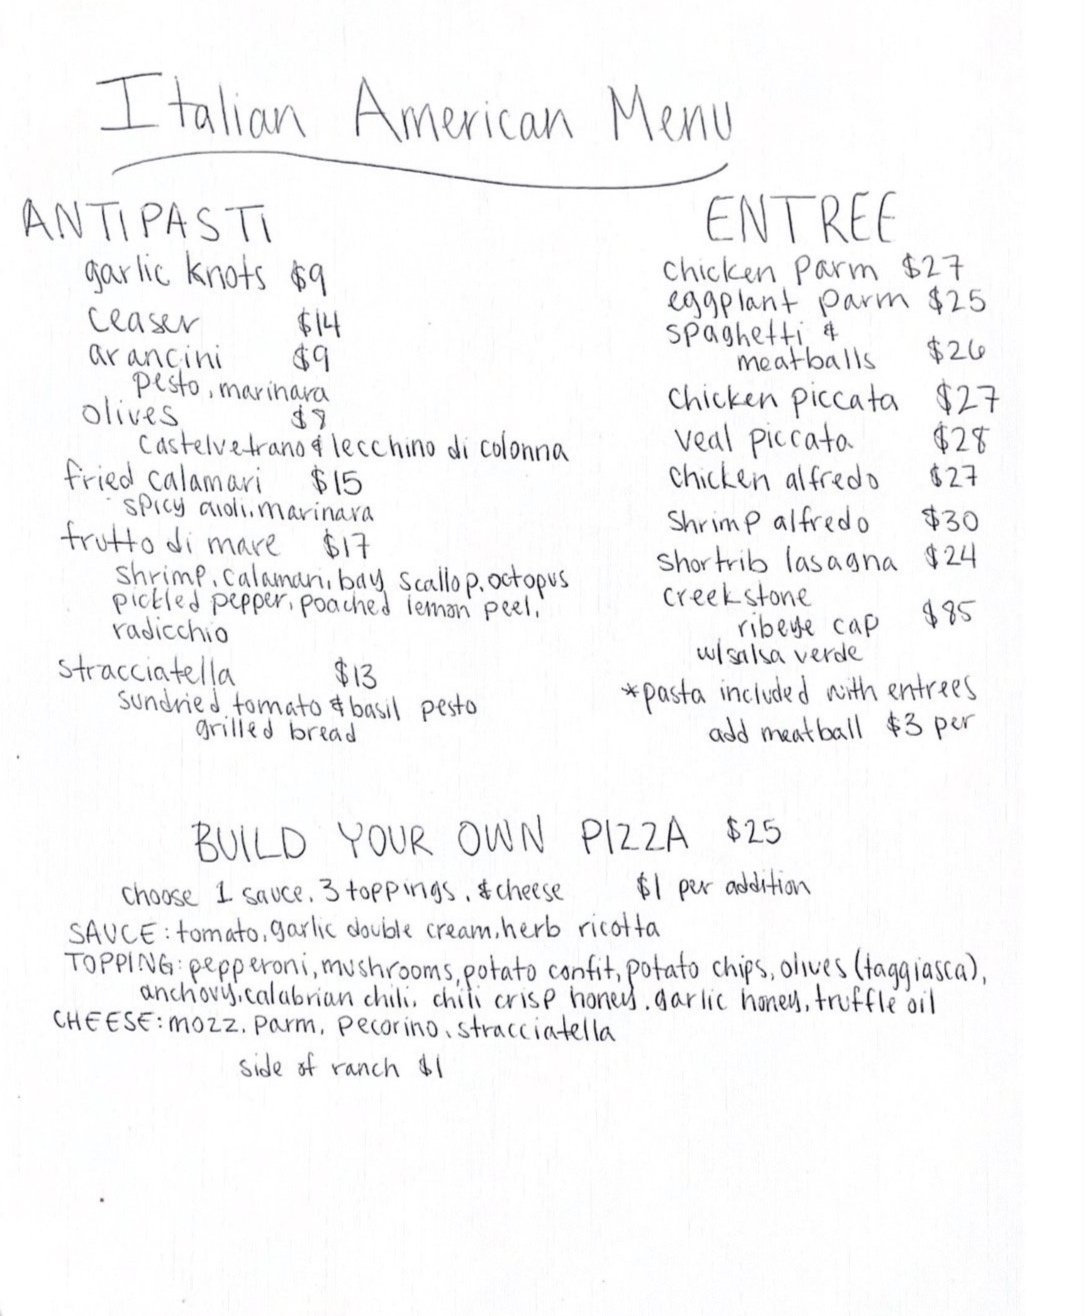 Italian American Menu
ANTIPASTI
garlic knots $9
ceaser $14
arancini $9
pesto, marinara
olives $8
castelvetrano & lecchino di colonna
fried calamari $15
spicy aioli, marinara
frutto di mare $17
shrimp, calamari, bay scallop, octopus
pickled pepper, poached lemon peel,
radicchio
stracciatella $13
sundried tomato & basil pesto
grilled bread
ENTREE
chicken parm $27
eggplant parm $25
spaghetti &
meatballs $26
chicken piccata $27
veal piccata $28
chicken alfredo $27
shrimp alfredo $30
shortrib lasagna $24
creekstone
ribeye cap $85
w/salsa verde
*pasta included with entrees
add meatball $3 per
BUILD YOUR OWN PIZZA $25
choose 1 sauce, 3 toppings, & cheese $1 per addition
SAUCE: tomato, garlic double cream, herb ricotta
TOPPING: pepperoni, mushrooms, potato confit, potato chips, olives (taggiasca),
anchovy, calabrian chili, chili crisp honey, garlic honey, truffle oil
CHEESE: mozz, parm, pecorino, stracciatella
side of ranch $1